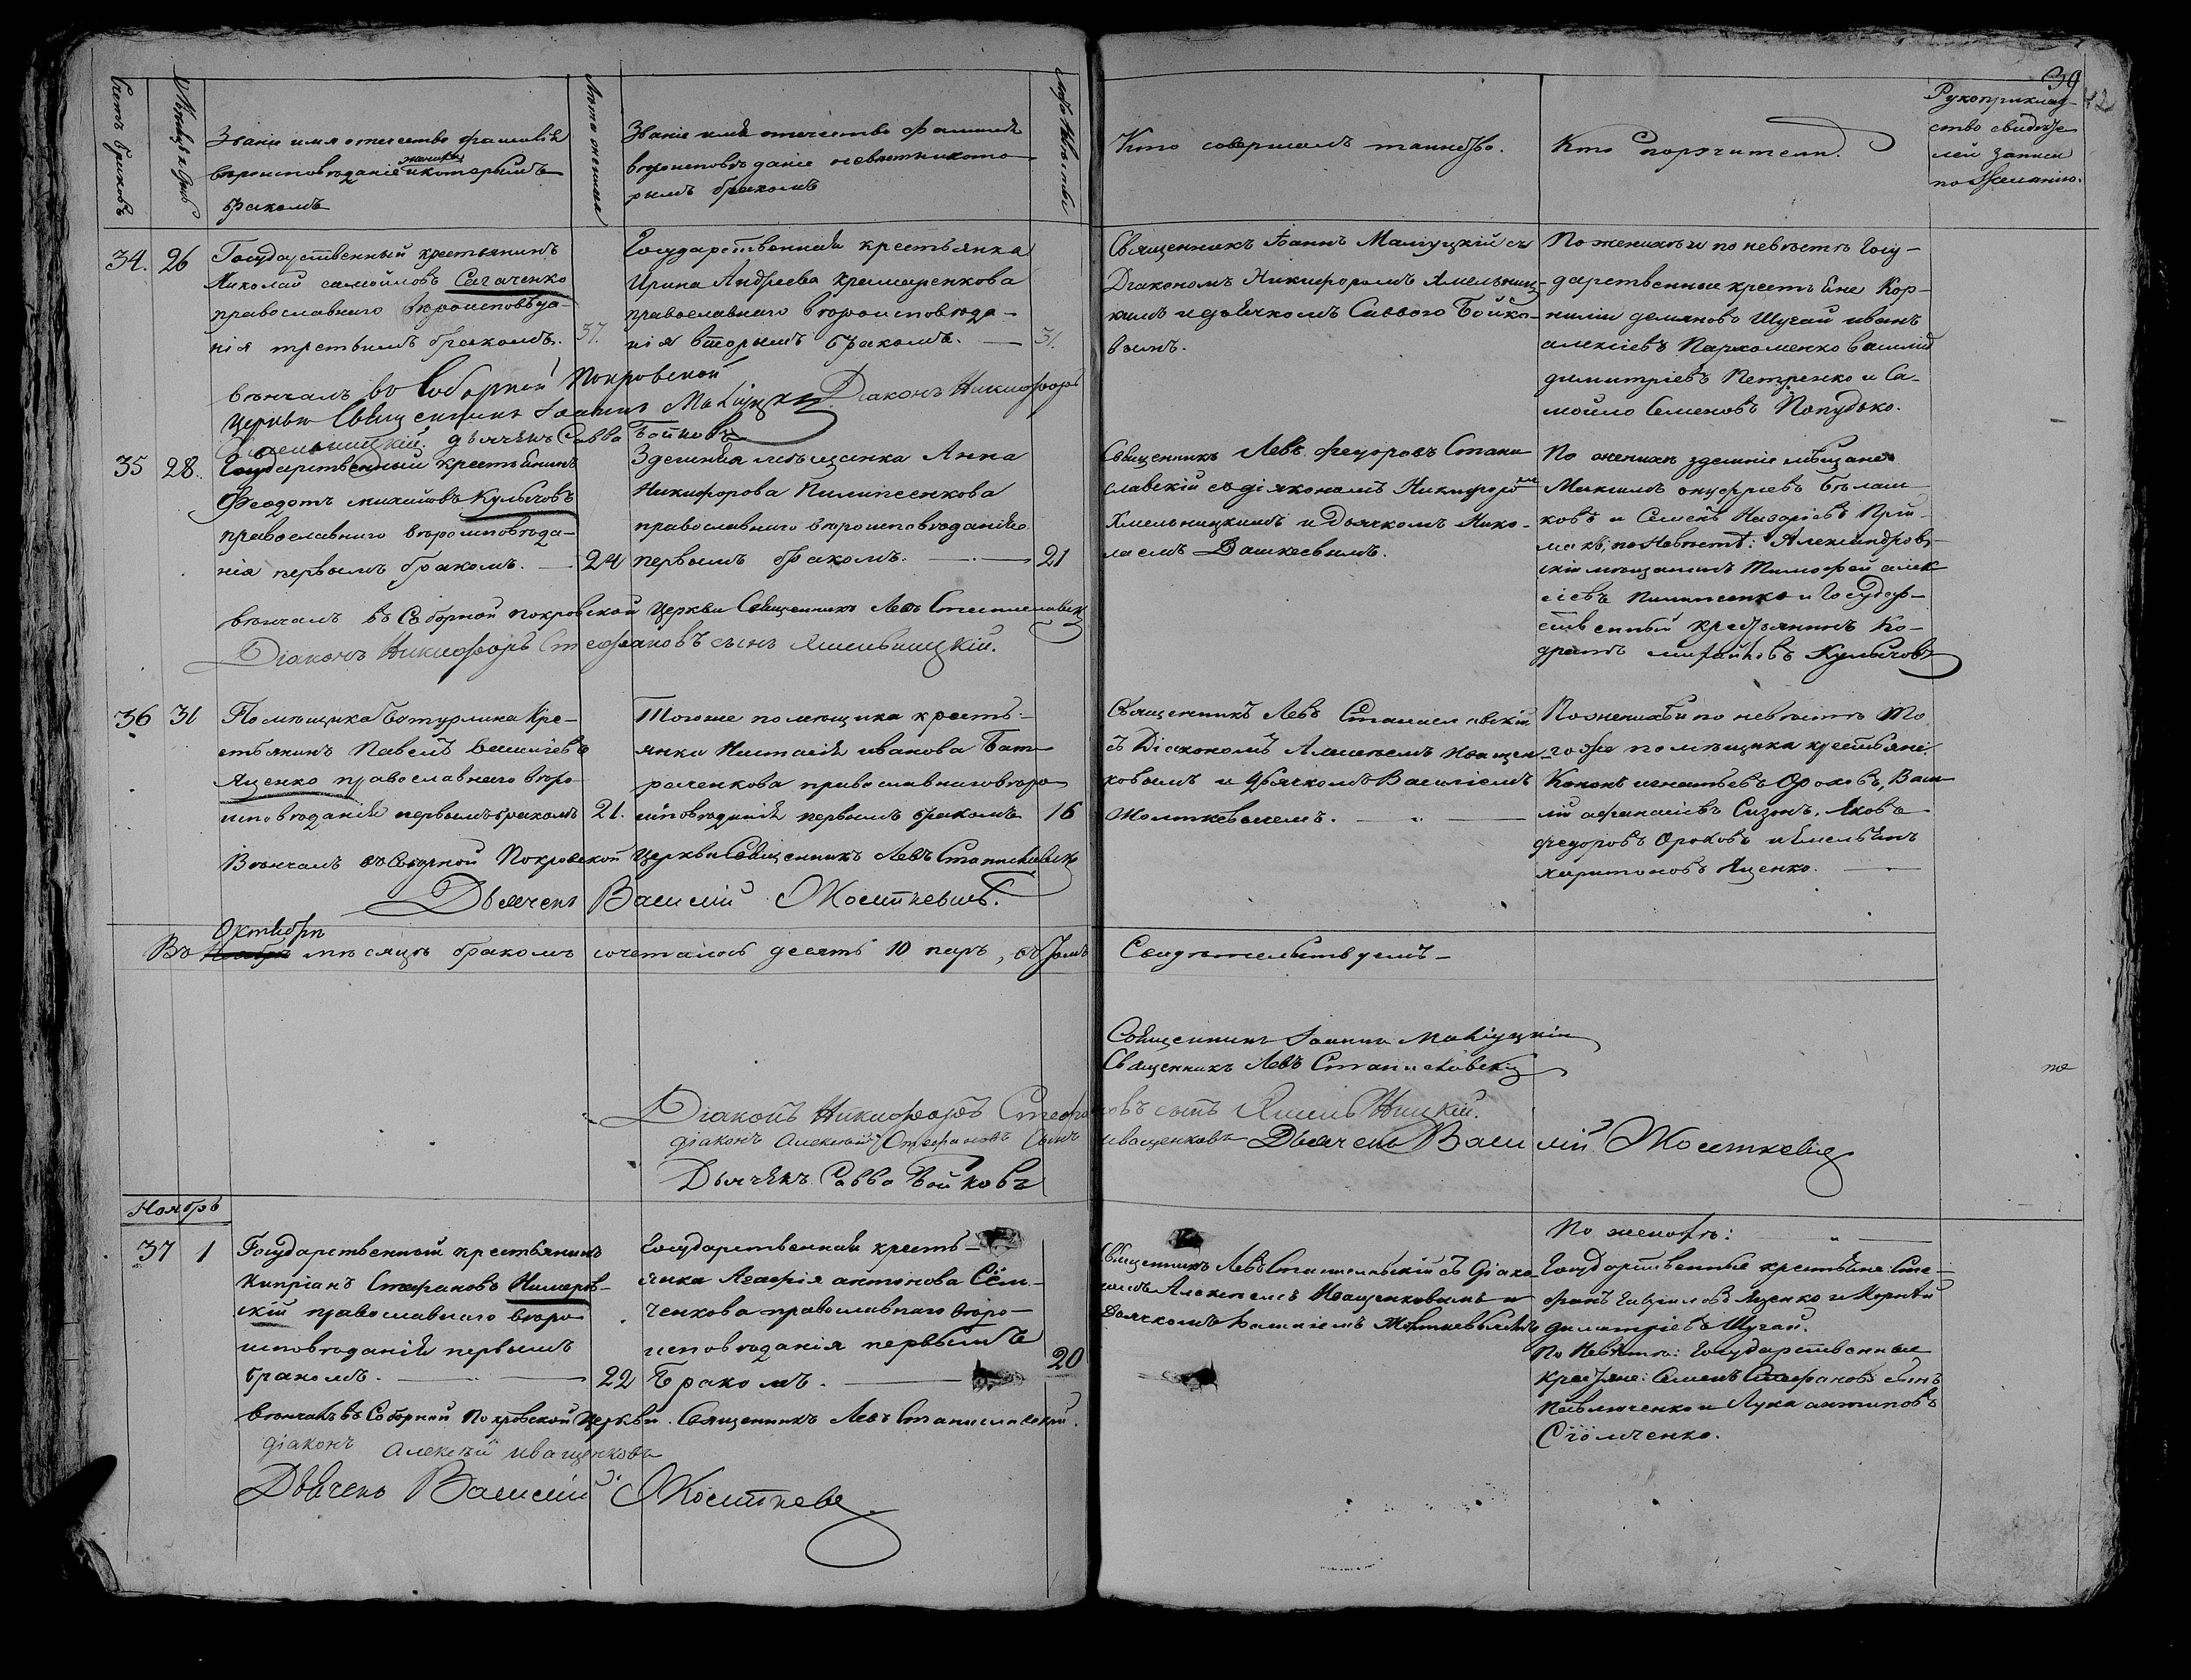 39
42
Счетъ браковъ
Мѣсяцъ и день
Званіе имя отчество фамилія
жениха
вѣроисповѣданіе и которымъ
бракомъ
Лѣта жениха
Званіе имя отчество фамилія
вѣроисповѣданіе невѣсты и кото-
рымъ бракомъ
Лѣта невѣсты
Кто совершалъ таинство.
Кто поручители.
Рукоприклад-
ство свидѣте
лей записи
по желанію.
34. 26
Государственный крестьянинъ
Николай самойловъ Сагаченко
православнаго вѣроисповѣда-
нія третьимъ бракомъ. 37.
Государственная крестьянка
Ирина Андреева Крамаренкова
православнаго вѣроисповѣда-
нія вторымъ бракомъ. — 31.
Священникъ Іоаннъ Маліуцкій съ
Діакономъ Никифоромъ Хмельниц-
кимъ и дьячкомъ Саввою Бойко-
вымъ.
По женихѣ и по невѣстѣ Госу-
дарственные крестьяне Кор-
нилій демяновъ Шугай иванъ
алексіевъ Пархоменко василій
димитріевъ Петренко и Са-
мойло Семеновъ Попудько.
вѣнчалъ во Соборной Покровской
церкви Священникъ Іоаннъ Маліуцкій Діаконъ Никифоръ
Хмельницкій. дьячекъ Савва Бойковъ
35 28.
Государственный крестьянинъ
Феодотъ михайловъ Кулычовъ
православнаго вѣроисповѣда-
нія первымъ бракомъ. — 24
Здешняя мѣщанка Анна
Никифорова Пилипсенкова
православнаго вѣроисповѣданія
первымъ бракомъ. — 21
Священникъ Левъ феодоровъ Стани
славскій съ діякономъ Никифоромъ
Хмельницкимъ и Дьячкомъ Нико-
лаемъ Дашкеевымъ.
По женихѣ здешніе мѣщане
Максимъ онуфріевъ Бѣлаш
ковъ и Семенъ Назаріевъ При-
макъ, по Невѣстѣ: Александров-
скій мѣщанинъ Тимофей алек
сіевъ Пилипсенко и Государ-
ственный крестьянинъ Ко-
дратъ михайловъ Кулычовъ
вѣнчалъ въ Соборной покровской церкви Священникъ Левъ Станиславскій
Діаконъ Никифоръ Стефановъ сынъ Хмельницкій.
36 31
Помѣщика Ботурлина Кре-
стьянинъ Павелъ василіевъ
Яценко православнаго вѣро-
исповѣданія первымъ бракомъ 21.
Тогоже помѣщика кресть-
янка Настасія иванова Бат-
раченкова православнаго вѣро
исповѣданія первымъ бракомъ 16
Священникъ Левъ Станиславскій
съ Діакономъ Алексѣемъ Иващен-
ковымъ и Дьячкомъ Василіемъ
Жолткевичемъ.
По женихѣ и по невѣстѣ То
гоже помѣщика крестьяне:
Кононъ игнатьевъ Ороховъ, Васи
лій афанасіевъ Сизонъ, Яковъ
федоровъ Ороховъ и Емельянъ
харитоновъ Яценко.
Вѣнчалъ въ Соборной Покровской церкви Священникъ Левъ Станиславскій
Дьячекъ Василій Жолткевичъ.
Октябрѣ
Въ Ноябрѣ мѣсяцѣ бракомъ сочеталось десять 10 паръ, въ томъ Свидѣтельствуемъ —
Священникъ Іоаннъ Маліуцкій
Священникъ Левъ Станиславскій
Діаконъ Никифоръ Стефановъ сынъ Хмельницкій.
діаконъ Алексѣй Стефановъ Сынъ иващенковъ Дьячекъ Василій Жолткевичъ
Дьячекъ Савва Бойковъ
Ноябрь
37 1
Государственный крестьянинъ
Кипріанъ Стефановъ Нимеров-
скій православнаго вѣро
исповѣданія первымъ
бракомъ. — 22
Государственная кресть-
янка Агафія антонова Сём-
ченкова православнаго вѣро-
исповѣданія первымъ
Бракомъ. — 20
Священникъ Левъ Станиславскій съ Діако-
номъ Алексѣемъ Иващенковымъ и
Дьячкомъ Василіемъ Жолткевичемъ
По женихѣ:
Государственные крестьяне: Сте-
фанъ Гавриловъ Яценко и Корнѣй
димитріевъ Шугай.
По Невѣстѣ: Государственные
крестьяне: Семенъ Стефановъ сынъ
Павлюченко и Лука антиповъ
Сіомченко.
вѣнчалъ въ Соборной Покровской Церкви. Священникъ Левъ Станиславскій.
діаконъ Алексѣй иващенковъ
Дьячекъ Василій Жолткевичъ